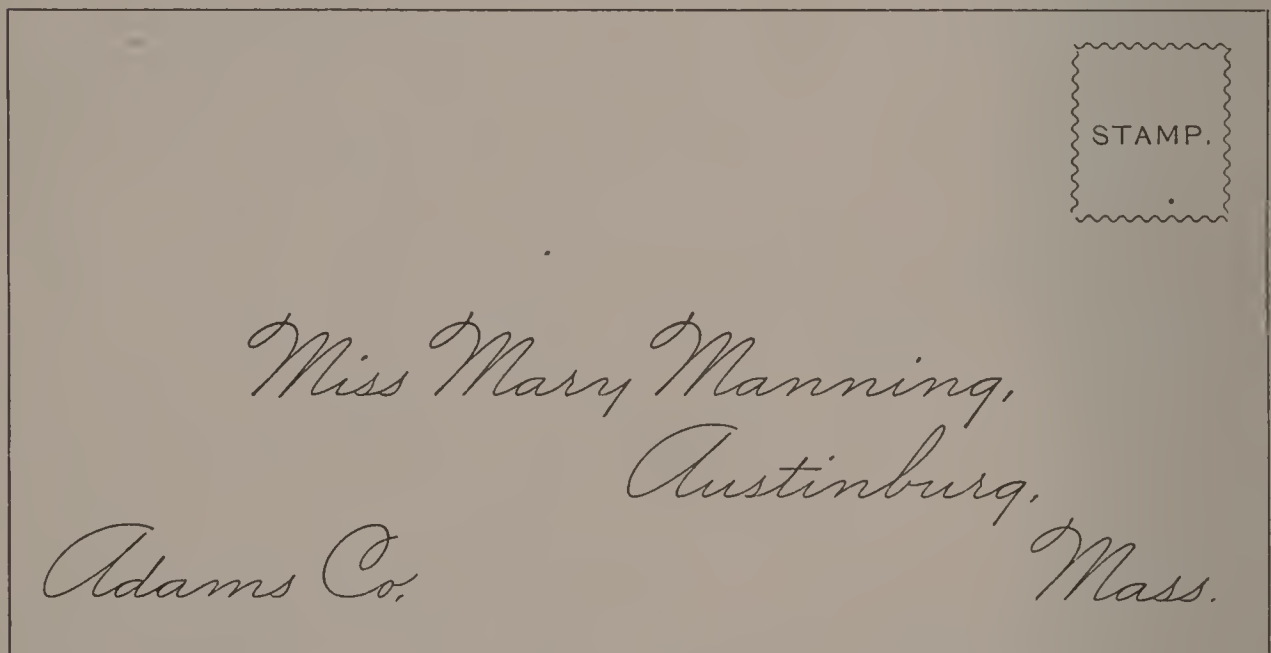 STAMP.
Miss Mary Manning,
Austinburg,
Adams Co. Mass.